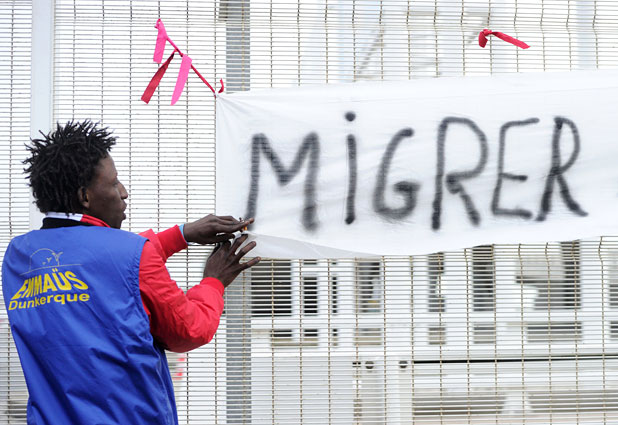 MiGRER
EMMAÜS
Dunkerque